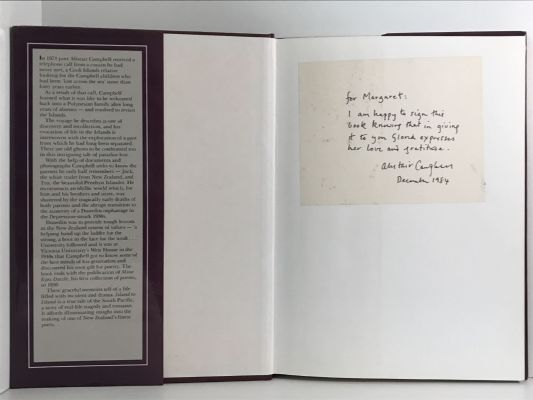 In 1979 poet Alistair Campbell received a
telephone call from a cousin he had
never met, a Cook Islands relative
looking for the Campbell children who
had been 'lost across the sea' more than
forty years earlier.
As a result of that call, Campbell
learned what it was like to be welcomed
back into a Polynesian family after long
years of absence — and resolved to revisit
the Islands.
The voyage he describes is one of
discovery and recollection, and his
evocation of life in the Islands is
interwoven with the exploration of a past
from which he had long been separated.
There are old ghosts to be confronted too
in this intriguing tale of paradise lost.
With the help of documents and
photographs Campbell seeks to know the
parents he only half remembers — Jock,
the white trader from New Zealand, and
Teu, the beautiful Penrhyn Islander. He
reconstructs an idyllic world which, for
him and his brothers and sister, was
shattered by the tragically early deaths of
both parents and the abrupt transition to
the austerity of a Dunedin orphanage in
the Depression-struck 1930s.
Dunedin was to provide tough lessons
in the New Zealand system of values — 'a
helping hand up the ladder for the
strong, a boot in the face for the weak.
University followed and it was at
Victoria University's Weir House in the
1940s that Campbell got to know some of
the best minds of his generation and
discovered his own gift for poetry. The
book ends with the publication of Mine
Eyes Dazzle, his first collection of poems,
in 1950.
These graceful memoirs tell of a life
filled with incident and drama. Island to
Island is a true tale of the South Pacific,
a story of real-life tragedy and romance.
It affords illuminating insight into the
making of one of New Zealand's finest
poets.
for Margaret:
I am happy to sign this
book knowing that in giving
it to you Gloria expresses
her love and gratitude.
Alistair Campbell
December 1984